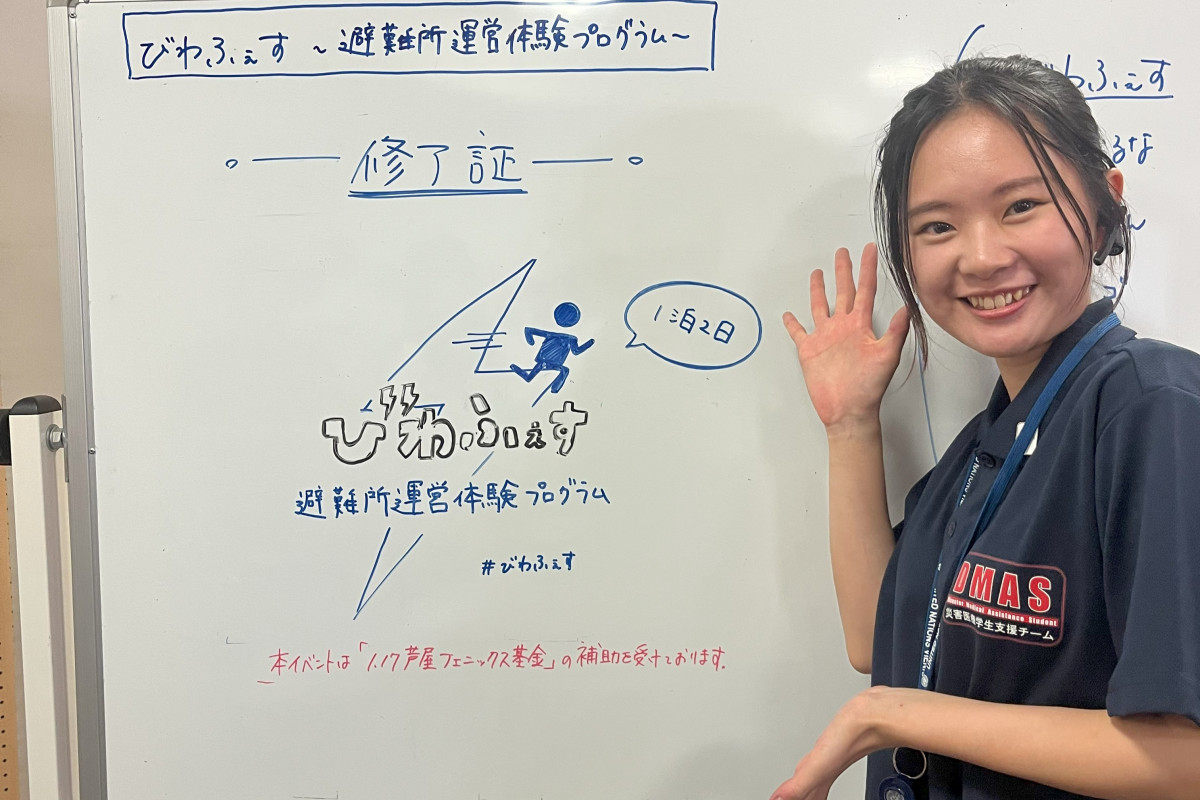 びわふぇす ~避難所運営体験プログラム~
修了証
1泊2日
びわふぇす
避難所運営体験プログラム
#びわふぇす
本イベントは「1.17芦屋フェニックス基金」の補助を受けております.
わふぇす
るな
ん
DMAS
Disaster Medical Assistance Student
災害医療学生支援チーム
UNITED NATIONS